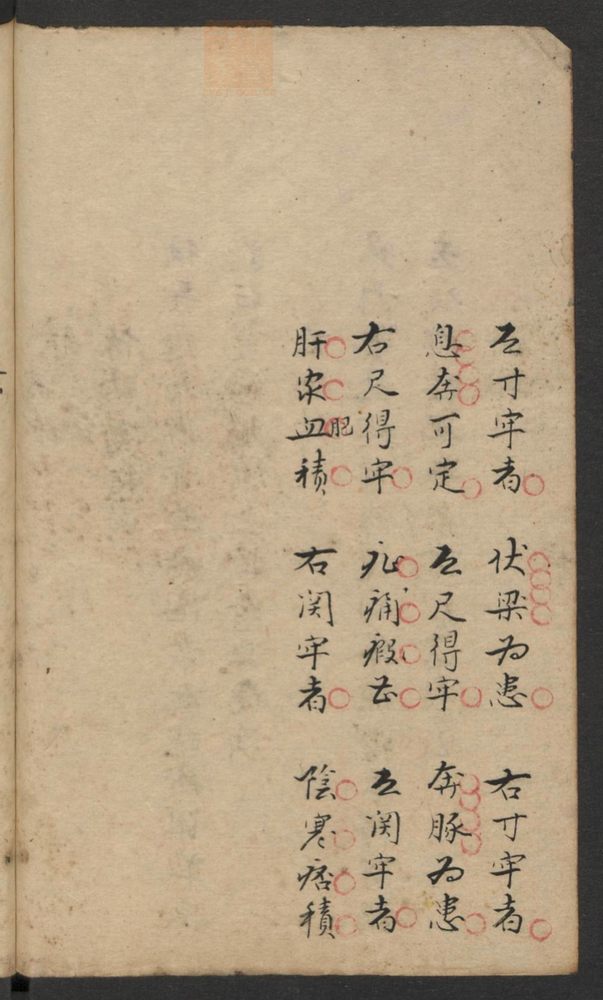 左寸牢者 伏梁为患 右寸牢者
息奔可定 左尺得牢 奔豚为患
右尺得牢 疝痛瘕甚 左関牢者
肥
肝家血積 右関牢者 陰寒痞積